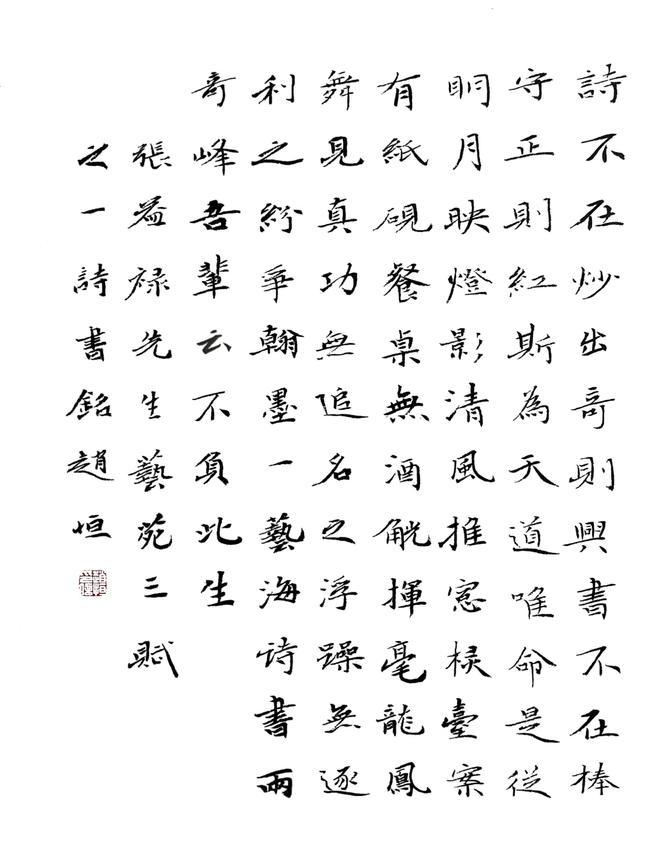 詩不在炒出奇則興書不在棒
守正則紅斯為天道唯命是從
明月映燈影清風推窓棂臺案
有紙硯餐桌無酒觥揮毫龍鳳
舞見真功無追名之浮躁無逐
利之紛爭翰墨一藝海诗書兩
奇峰吾輩云不負此生
張益禄先生藝苑三賦
之一詩書銘趙恒